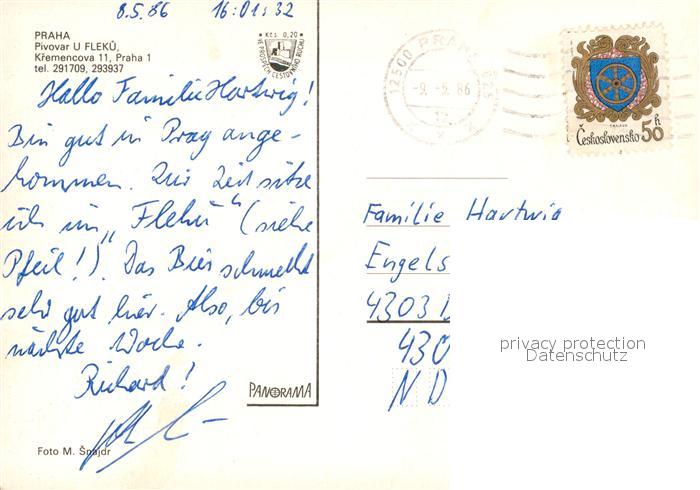 8.5.86 16:01:32
PRAHA
Pivovar U FLEKŮ,
Křemencova 11, Praha 1
tel. 291709, 293937
Kčs 0,20
VE PROSPĚCH CESTOVNÍHO RUCHU
Hallo Familie Hartwig!
Bin gut in Prag ange-
kommen. Zur Zeit sitze
ich im „Flekú“ (siehe
Pfeil!). Das Bier schmeckt
sehr gut hier. Also, bis
nächste Woche.
Richard!
PANORAMA
Foto M. Šnajdr
12500 PRAHA
-9.-5.86
Československo 50 h
Familie Hartwig
Engels
4303 D
430
ND
privacy protection
Datenschutz